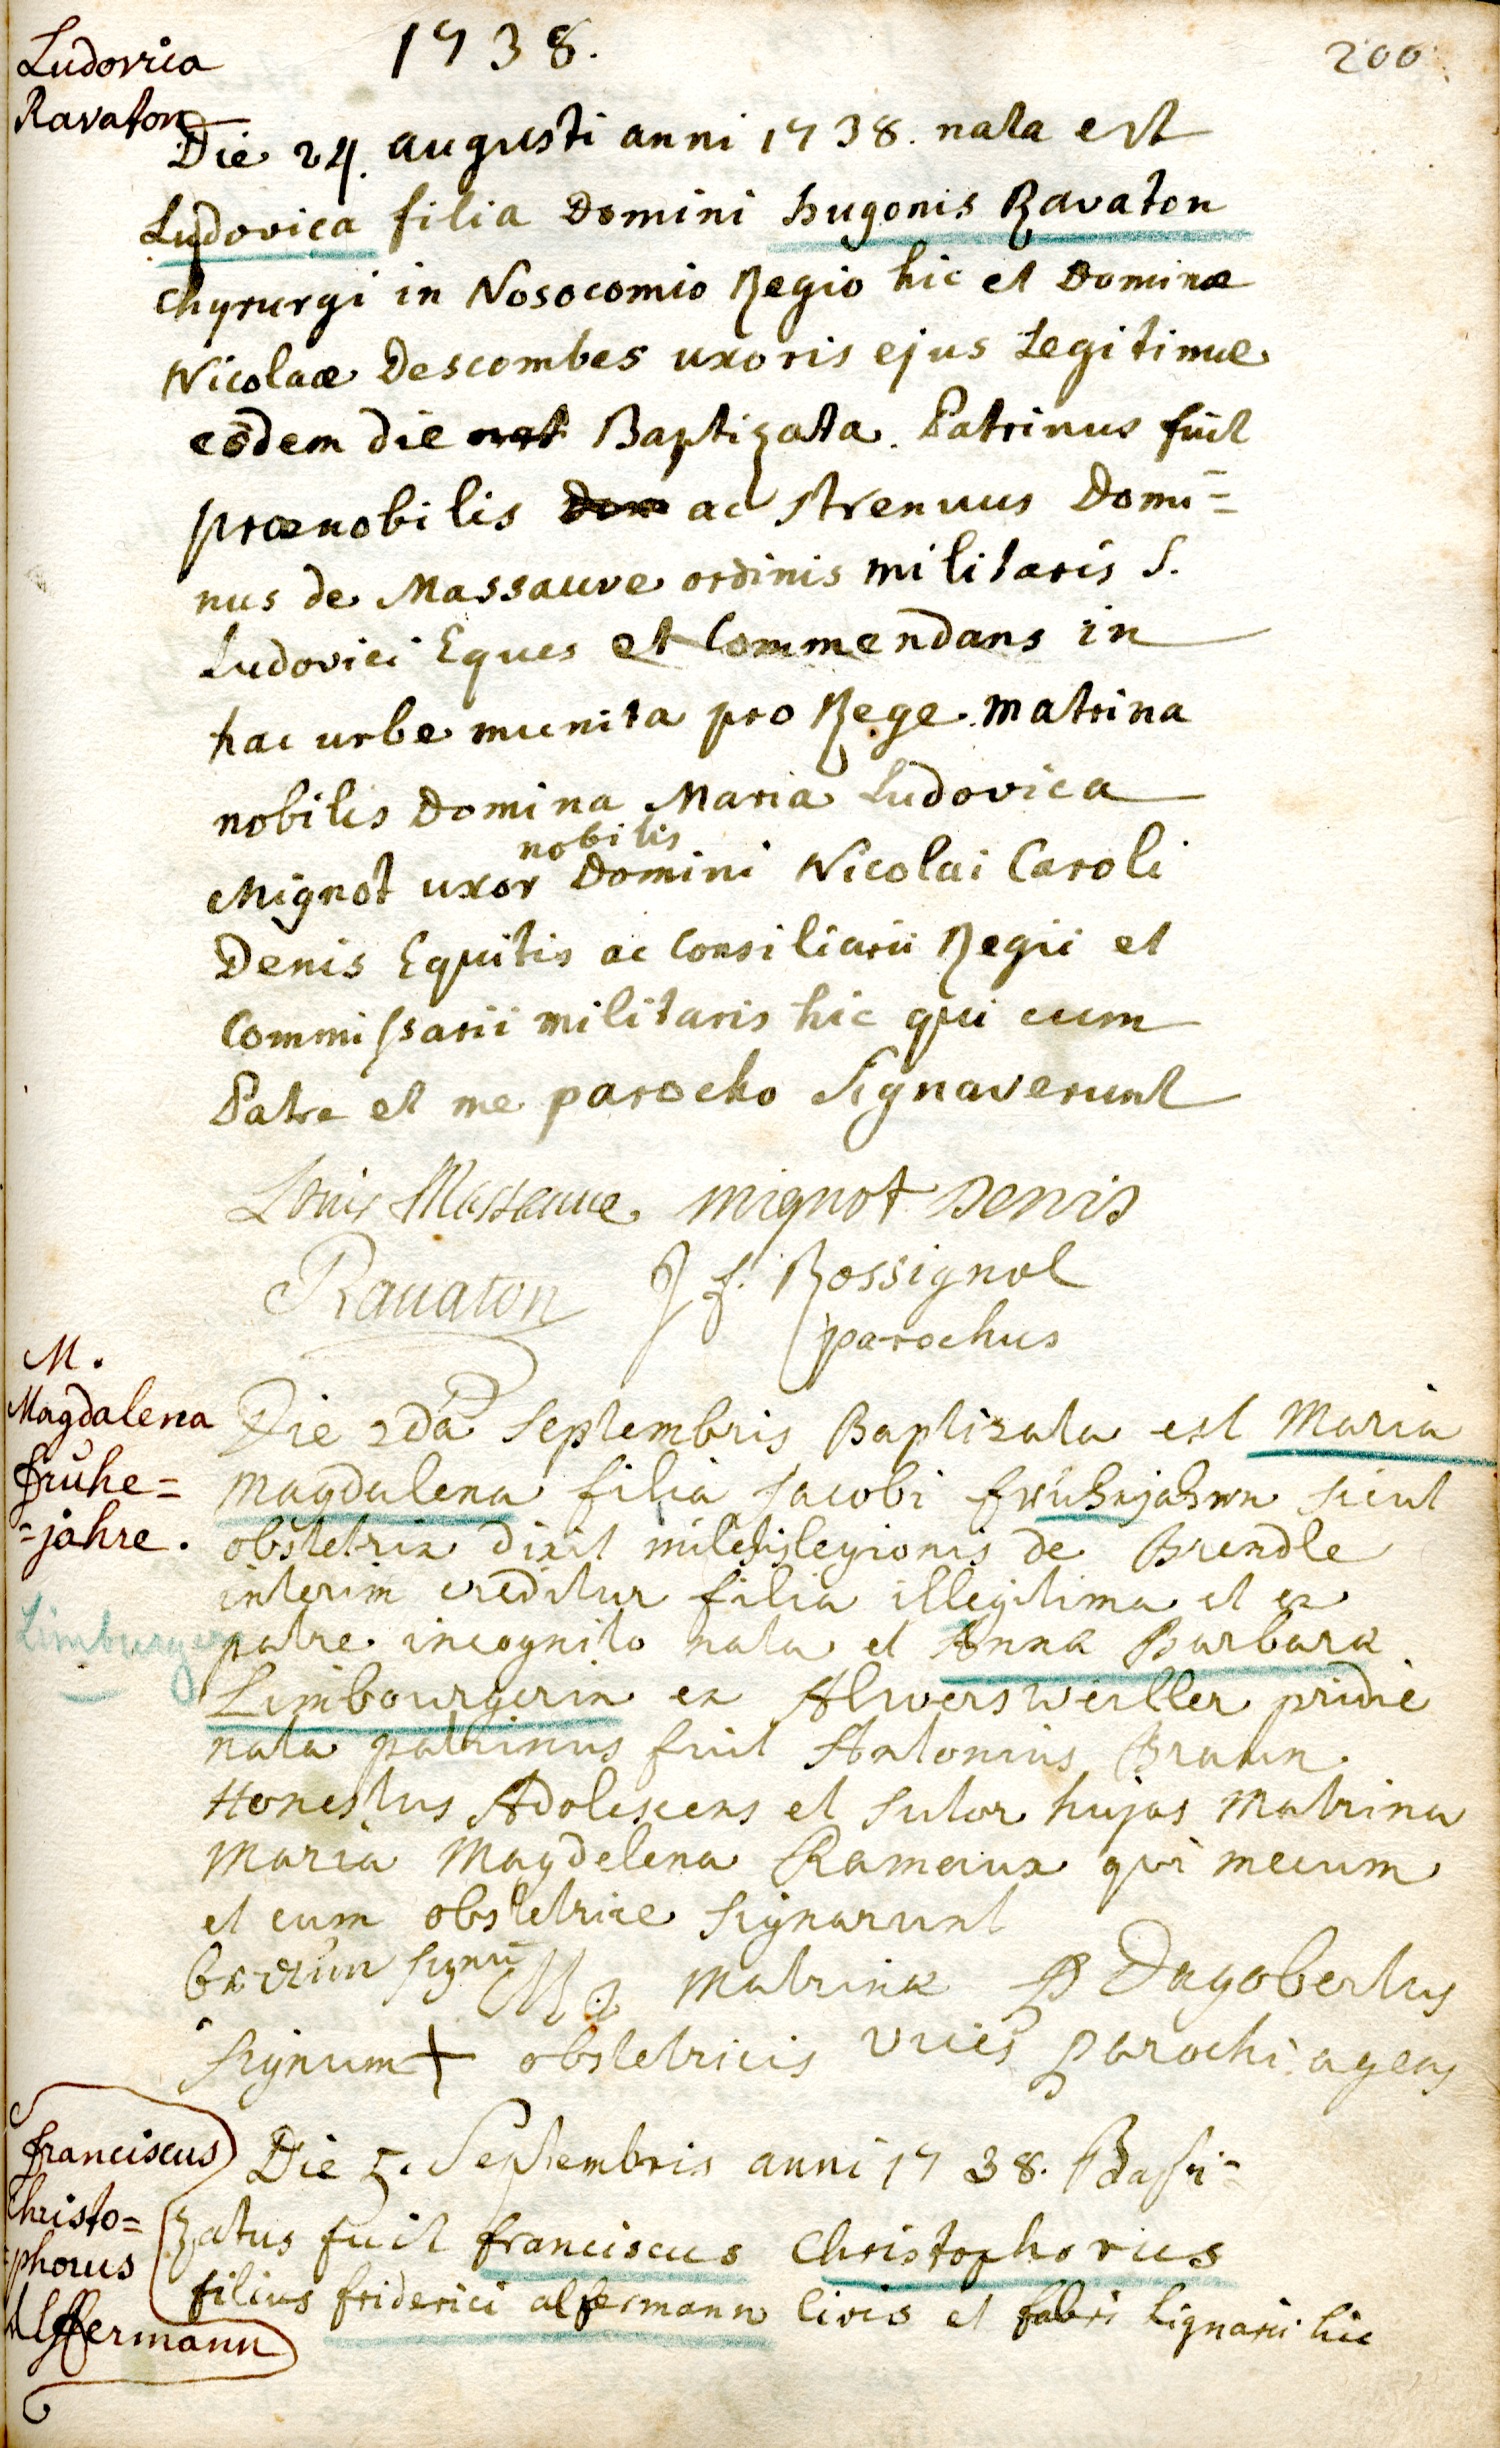 1738.
200
Ludovica
Ravaton
Die 24. augusti anni 1738. nata est
Ludovica filia Domini hugonis Ravaton
Chyrurgi in Nosocomio Regio hic et Dominæ
Nicolaæ Descombes uxoris ejus Legitimæ
eodem die nat Baptizata. Patrinus fuit
prænobilis Dom ac strenuus Domi=
nus de Massauve ordinis militaris S.
Ludovici Eques et Commendans in
hac urbe munita pro Rege. Matrina
nobilis Domina Maria Ludovica
nobilis
Mignot uxor Domini Nicolai Caroli
Denis Equitis ac Consiliarii Regii et
Commissarii militaris hic qui cum
Patre et me parocho signaverunt
Louis Massauve mignot Denis
Rauaton J f. Rossignol
parochus
M.
Magdalena
frühe=
=jahre.
Limburger
Die 2da Septembris Baptizata est Maria
Magdalena filia Jacobi frühejahren sicut
obstetrix dixit militis legionis de Brendle
interim creditur filia illegitima et ex
patre incognito nata et Anna Barbara
Limbourgerin ex Alwersweiller pridie
nata patrinus fuit Antonius Braun
Honestus Adolescens et sutor hujas Matrina
Maria Magdelena Rameaux qui mecum
et cum obstetrice signarunt
signū matrinæ P Dagobertus
Signum + obstetricis vices Parochi agens
franciscus
Christo=
=phorus
Alffermann
Die 5. Septembris anni 1738. Bapti=
zatus fuit franciscus Christophorus
filius friderici alfermann Civis et fabri lignarii hic